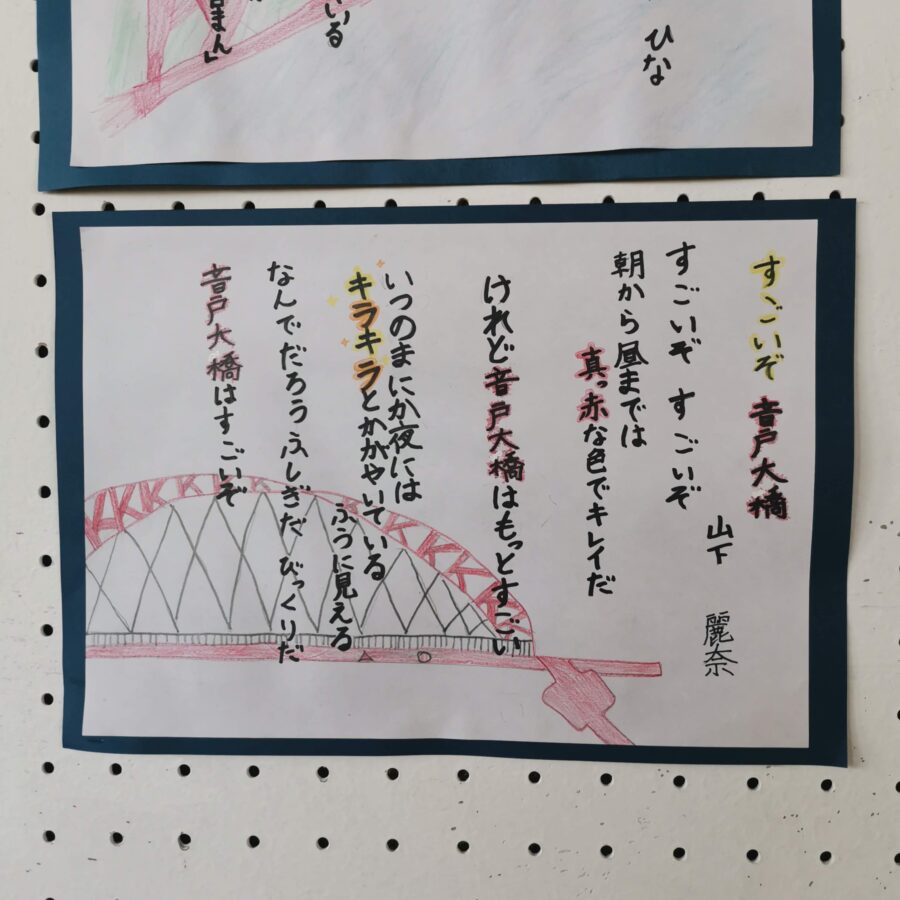 ひな
いる
まん」
すごいぞ 音戸大橋
山下 麗奈
すごいぞ すごいぞ
朝から昼までは
真っ赤な色でキレイだ
けれど音戸大橋はもっとすごい
いつのまにか夜には
キラキラとかがやいている
ふうに見える
なんでだろう ふしぎだ びっくりだ
音戸大橋はすごいぞ